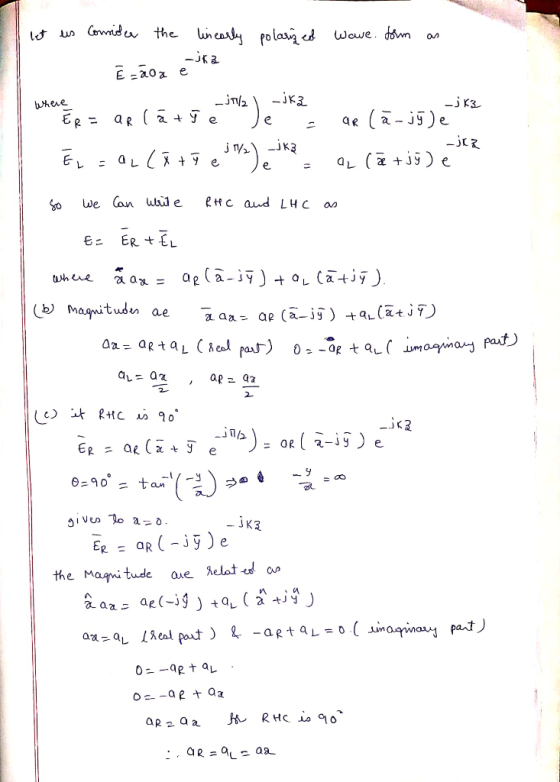 let us Consider the linearly polarized wave. form as
Ē = x̄ a𝑥 e^{-jkz}
where
Ē_R = a_R ( x̄ + ȳ e^{-jπ/2} ) e^{-jkz} = a_R ( x̄ - jȳ ) e^{-jkz}
Ē_L = a_L ( x̄ + ȳ e^{jπ/2} ) e^{-jkz} = a_L ( x̄ + jȳ ) e^{-jkz}
So We Can Write RHC and LHC as
E = Ē_R + Ē_L
where x̄ a𝑥 = a_R ( x̄ - jȳ ) + a_L ( x̄ + jȳ ).
(b) Magnitudes ae x̄ a𝑥 = a_R ( x̄ - jȳ ) + a_L ( x̄ + jȳ )
a𝑥 = a_R + a_L ( real part ) 0 = -a_R + a_L ( imaginary part )
a_L = a𝑥/2 , a_R = a𝑥/2
(c) if RHC is 90°
Ē_R = a_R ( x̄ + ȳ e^{-jπ/2} ) = a_R ( x̄ - jȳ ) e^{-jkz}
θ = 90° = tan⁻¹ ( -y/x ) ⇒ -y/x = ∞
gives to x = 0.
Ē_R = a_R ( -jȳ ) e^{-jkz}
the Magnitude are related as
x̂ a𝑥 = a_R ( -jŷ ) + a_L ( x̂ + jŷ )
a𝑥 = a_L ( real part ) & -a_R + a_L = 0 ( imaginary part )
0 = -a_R + a_L .
0 = -a_R + a𝑥
a_R = a𝑥 for RHC is 90°
∴ a_R = a_L = a𝑥